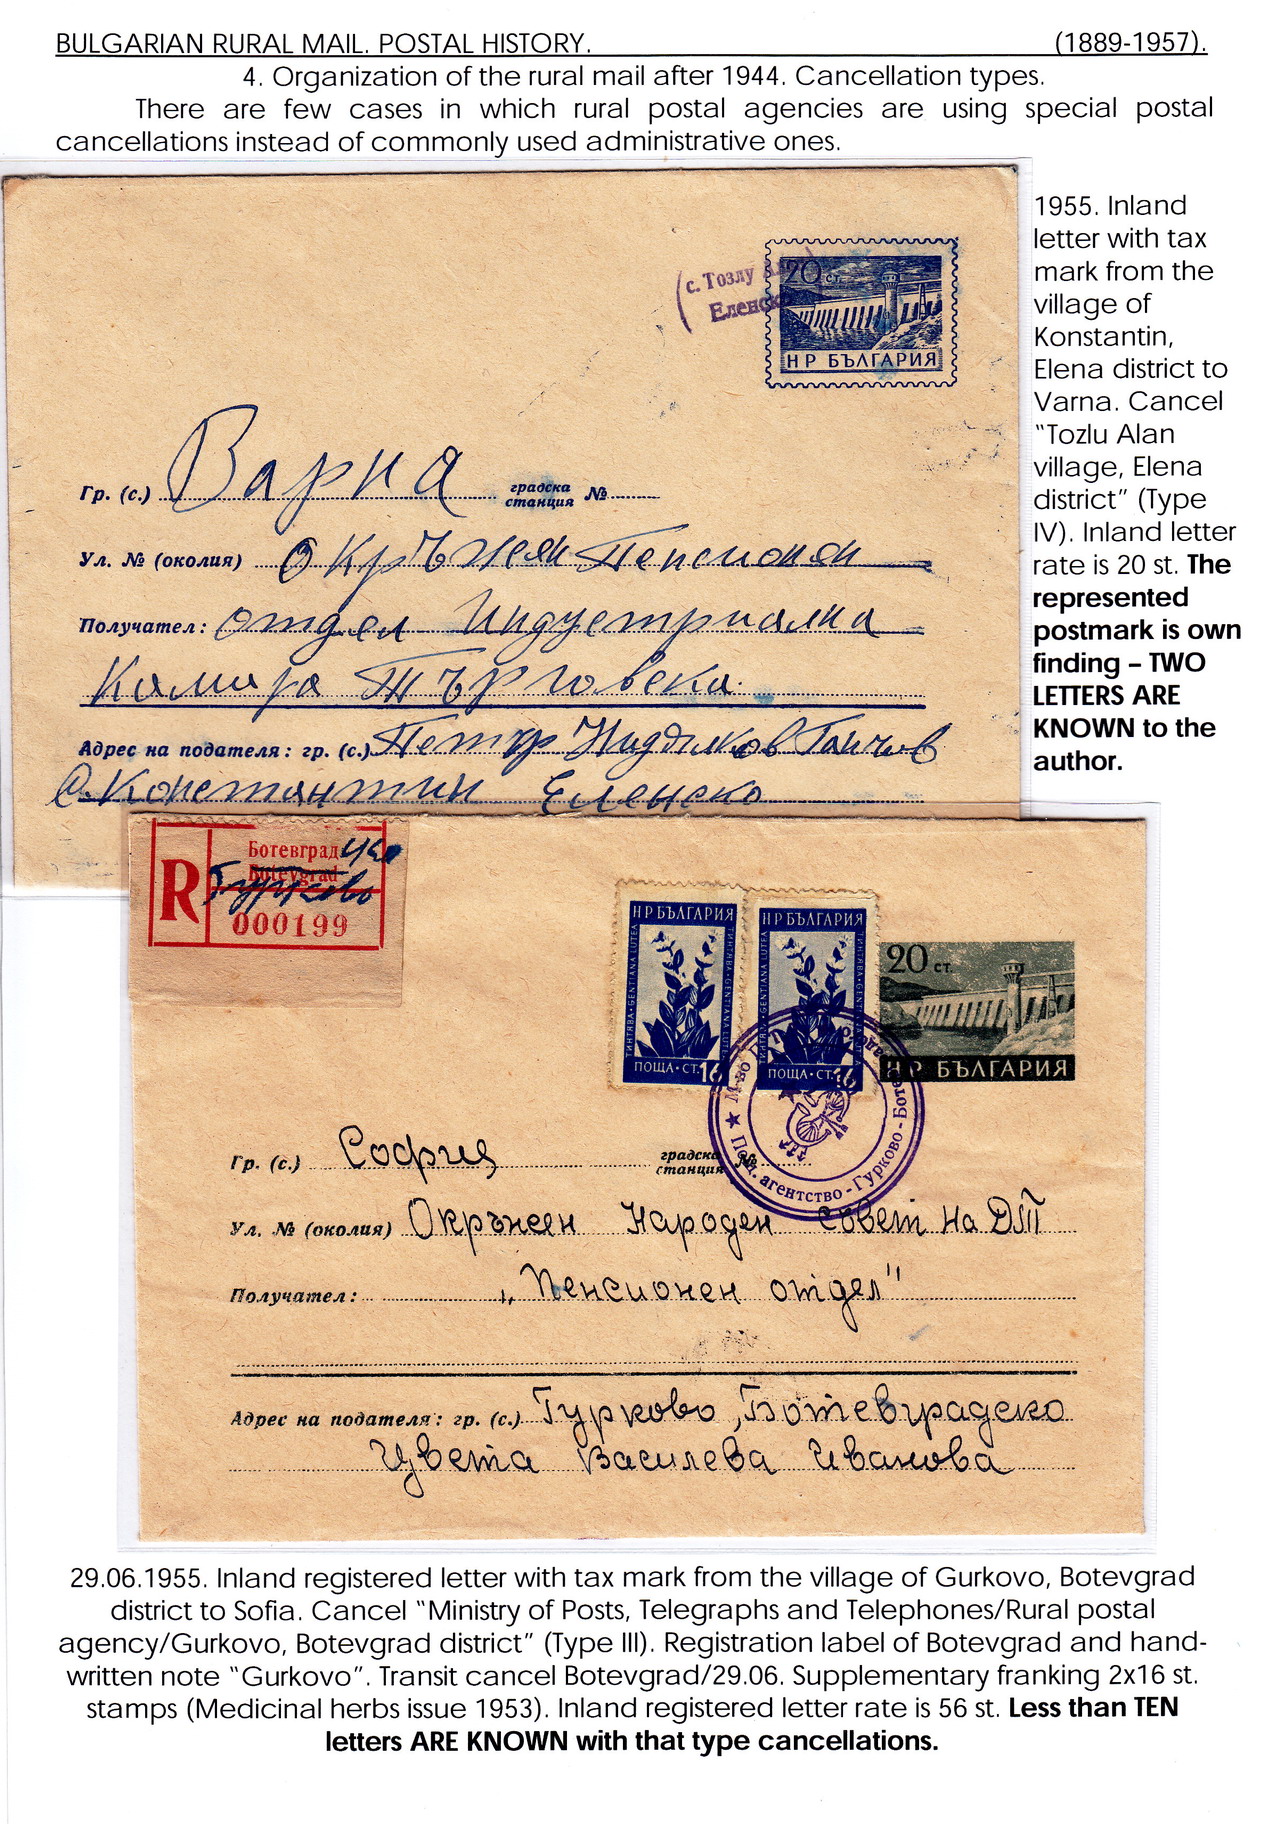 BULGARIAN RURAL MAIL. POSTAL HISTORY. (1889-1957).
4. Organization of the rural mail after 1944. Cancellation types.
There are few cases in which rural postal agencies are using special postal
cancellations instead of commonly used administrative ones.
1955. Inland
letter with tax
mark from the
village of
Konstantin,
Elena district to
Varna. Cancel
“Tozlu Alan
village, Elena
district” (Type
IV). Inland letter
rate is 20 st. The
represented
postmark is own
finding – TWO
LETTERS ARE
KNOWN to the
author.
с. Тозлу
Еленско
20 ст.
НР БЪЛГАРИЯ
Гр. (с.) Варна градска станция №
Ул. № (околия) Окръжен Пенсионен
Получател: отдел Индустриална
Камара Търговска
Адрес на подателя: гр. (с.) Петър Ганчев
с. Константин Еленско
R
Ботевград
Botevgrad
Гурково
000199
НР БЪЛГАРИЯ
ТИНТЯВА · GENTIANA LUTEA
ПОЩА · СТ. 16
НР БЪЛГАРИЯ
ТИНТЯВА · GENTIANA LUTEA
ПОЩА · СТ. 16
20 ст.
НР БЪЛГАРИЯ
М-во
агентство - Гурково - Боте
Гр. (с.) София градска станция №
Ул. № (околия) Окръжен Народен Съвет на ДТ
Получател: „Пенсионен отдел"
Адрес на подателя: гр. (с.) Гурково, Ботевградско
Цвета Василева Иванова
29.06.1955. Inland registered letter with tax mark from the village of Gurkovo, Botevgrad
district to Sofia. Cancel “Ministry of Posts, Telegraphs and Telephones/Rural postal
agency/Gurkovo, Botevgrad district” (Type III). Registration label of Botevgrad and hand-
written note “Gurkovo”. Transit cancel Botevgrad/29.06. Supplementary franking 2x16 st.
stamps (Medicinal herbs issue 1953). Inland registered letter rate is 56 st. Less than TEN
letters ARE KNOWN with that type cancellations.